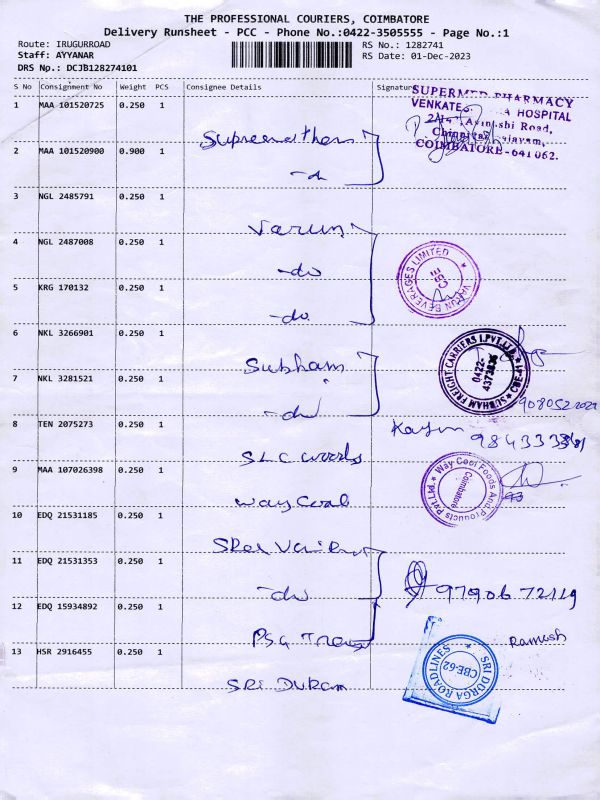 THE PROFESSIONAL COURIERS, COIMBATORE
Delivery Runsheet - PCC - Phone No.:0422-3505555 - Page No.:1
Route: IRUGURROAD
Staff: AYYANAR
DRS No.: DCJB128274101
RS No.: 1282741
RS Date: 01-Dec-2023
S No Consignment No Weight PCS Consignee Details Signature
1 MAA 101520725 0.250 1
SUPERMED PHARMACY
HOSPITAL
COIMBATORE-641062.
2 MAA 101520900 0.900 1
-do
3 NGL 2485791 0.250 1
Varun
4 NGL 2487008 0.250 1
-do
VARUN BEVERAGES LIMITED
5 KRG 170132 0.250 1
-do.
6 NKL 3266901 0.250 1
Subham
SUBHAM FREIGHT CARRIERS I.PVT.LTD.
0422-
4373836
7 NKL 3281521 0.250 1
-do
8 TEN 2075273 0.250 1
SLC works
9 MAA 107026398 0.250 1
Way Cool
Way Cool Foods And Products Pvt.Ltd.
Coimbatore
10 EDQ 21531185 0.250 1
11 EDQ 21531353 0.250 1
-do
9790672119
12 EDQ 15934892 0.250 1
PSG
13 HSR 2916455 0.250 1
SRI DURGA ROADLINES
CBE-62
Ramesh
SRI